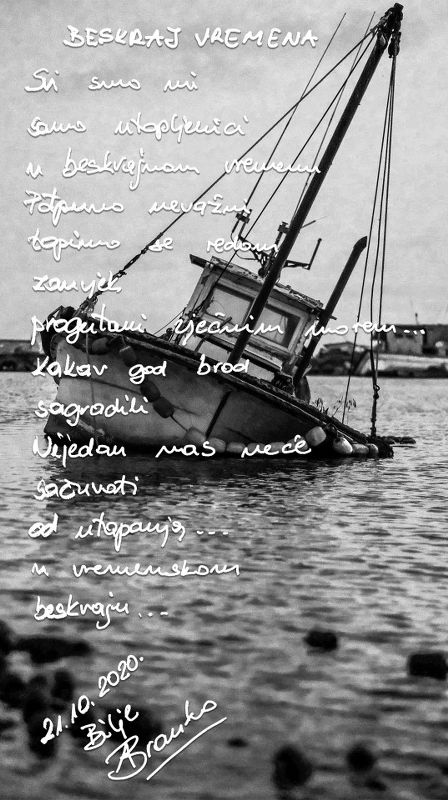 BESKRAJ VREMENA
Svi smo mi
samo utopljenici
u beskrajnom vremenu
Potpuno nevažni
topimo se redom
zauvjek,
progutani vječnim morem...
Kakav god brod
sagradili
Nijedan nas neće
sačuvati
od utapanja...
u vremenskom
beskraju...
21.10.2020.
Bilje
Branko